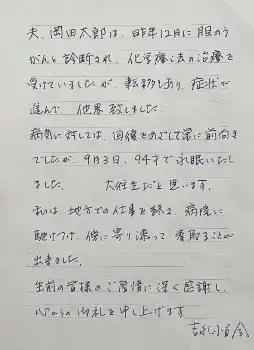 夫、岡田太郎は、昨年12月に胆のう
がんと診断され、化学療法の治療を
受けていましたが、転移もあり、症状が
進んで、他界致しました。
病気に対しては、回復をめざして常に前向き
でしたが、9月3日、94才で永眠いたし
ました。 大往生だと思います。
私は地方での仕事を終え、病院に
駆けつけ、傍に寄り添って看取ることが
出来ました。
生前の皆様のご厚情に深く感謝し、
心からの御礼を申し上げます
吉永小百合